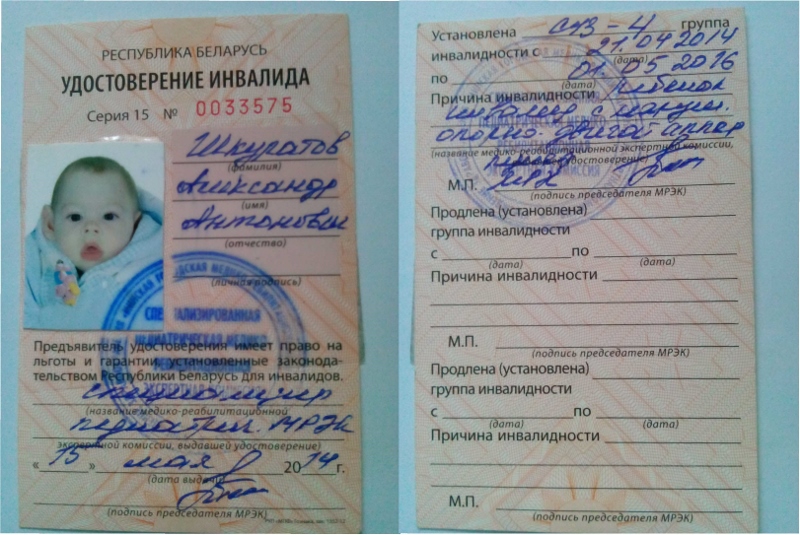 РЕСПУБЛИКА БЕЛАРУСЬ
УДОСТОВЕРЕНИЕ ИНВАЛИДА
Серия 15 № 0033575
Шкуратов
(фамилия)
Александр
(имя)
Антонович
(отчество)
(личная подпись)
Предъявитель удостоверения имеет право на
льготы и гарантии, установленные законода-
тельством Республики Беларусь для инвалидов.
(название медико-реабилитационной
педиатрич. МРЭК
экспертной комиссии, выдавшей удостоверение)
« 15 » мая 2014 г.
(дата выдачи)
(подпись председателя МРЭК)
Установлена СУЗ-4 группа
инвалидности с 21.04 2014
(дата)
по 01.05 2016
(дата)
Причина инвалидности ребенок
инвалид с наруш.
опорно-двигат аппар
(название медико-реабилитационной экспертной комиссии,
удостоверение)
М.П.
(подпись председателя МРЭК)
Продлена (установлена)
группа инвалидности
с по
(дата) (дата)
Причина инвалидности
М.П.
(подпись председателя МРЭК)
Продлена (установлена)
группа инвалидности
с по
(дата) (дата)
Причина инвалидности
М.П.
(подпись председателя МРЭК)